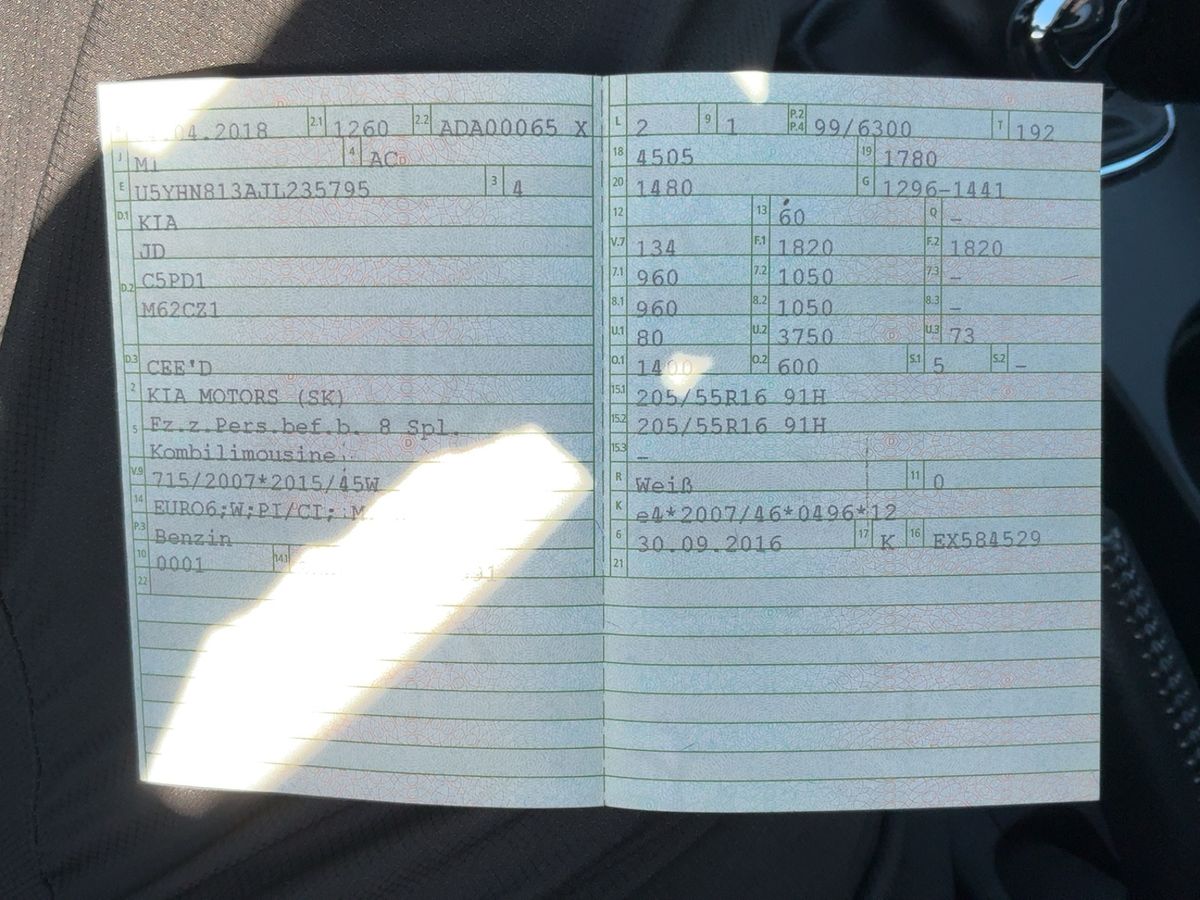 .04.2018 2.1 1260 2.2 ADA00065 X
J M1 4 AC
E U5YHN813AJL235795 3 4
D.1 KIA
JD
D.2 C5PD1
M62CZ1
D.3 CEE'D
2 KIA MOTORS (SK)
5 Fz.z.Pers.bef.b. 8 Spl.
Kombilimousine
V.9 715/2007*2015/45W
14 EURO6;W;PI/CI; M
P.3 Benzin
10 0001 14.1
22
L 2 9 1 P.2 P.4 99/6300 T 192
18 4505 19 1780
20 1480 G 1296-1441
12 13 60 Q –
V.7 134 F.1 1820 F.2 1820
7.1 960 7.2 1050 7.3 –
8.1 960 8.2 1050 8.3 –
U.1 80 U.2 3750 U.3 73
O.1 1400 O.2 600 S.1 5 S.2 –
15.1 205/55R16 91H
15.2 205/55R16 91H
15.3 –
R Weiß 11 0
K e4*2007/46*0496*12
6 30.09.2016 17 K 16 EX584529
21